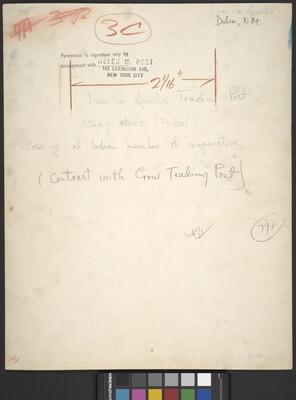 3C
Dulce, N.M.
Permission to reproduce only by
arrangement with HELEN M. POST
142 LEXINGTON AVE.
NEW YORK CITY
2 1/16"
Jicarilla Apache Trading Post
Coop store (Tribal)
Close up of Indian member of cooperative
(Contrast with Crow Trading Post)